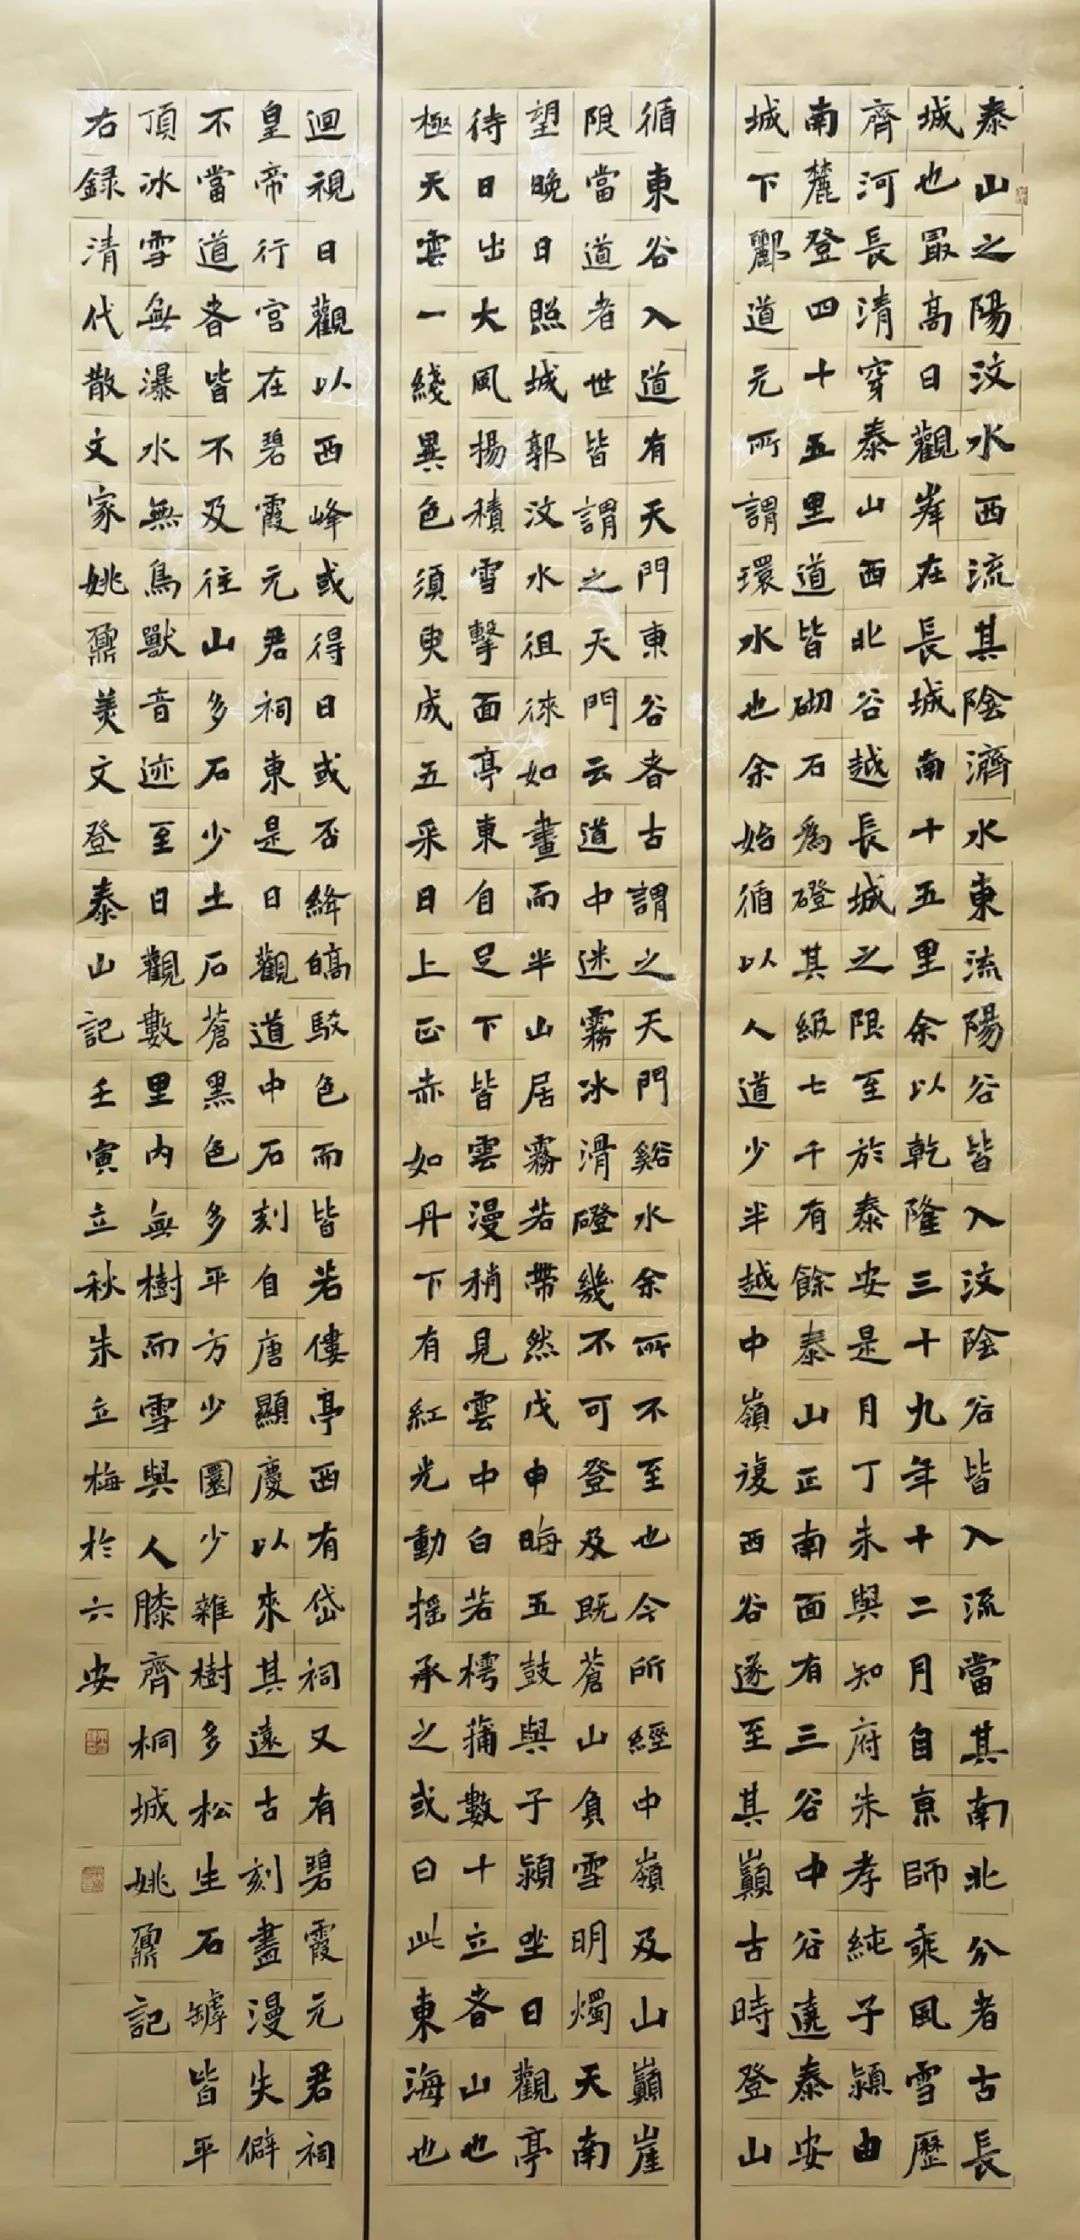 泰山之陽汶水西流其陰濟水東流陽谷皆入汶陰谷皆入流當其南北分者古長
城也最高日觀峯在長城南十五里余以乾隆三十九年十二月自京師乘風雪歷
齊河長清穿泰山西北谷越長城之限至於泰安是月丁未與知府朱孝純子潁由
南麓登四十五里道皆砌石為磴其級七千有餘泰山正南面有三谷中谷遶泰安
城下酈道元所謂環水也余始循以人道少半越中嶺復西谷遂至其巔古時登山
循東谷入道有天門東谷者古謂之天門谿水余所不至也今所經中嶺及山巔崖
限當道者世皆謂之天門云道中迷霧冰滑磴幾不可登及既蒼山負雪明燭天南
望晚日照城郭汶水徂徠如畫而半山居霧若帶然戊申晦五鼓與子潁坐日觀亭
待日出大風揚積雪擊面亭東自足下皆雲漫稍見雲中白若樗蒱數十立者山也
極天雲一綫異色須臾成五采日上正赤如丹下有紅光動搖承之或曰此東海也
迴視日觀以西峰或得日或否絳皜駮色而皆若僂亭西有岱祠又有碧霞元君祠
皇帝行宮在碧霞元君祠東是日觀道中石刻自唐顯慶以來其遠古刻盡漫失僻
不當道者皆不及往山多石少土石蒼黑色多平方少圜少雜樹多松生石罅皆平
頂冰雪無瀑水無鳥獸音迹至日觀數里內無樹而雪與人膝齊桐城姚鼐記
右録清代散文家姚鼐美文登泰山記壬寅立秋朱立梅於六安